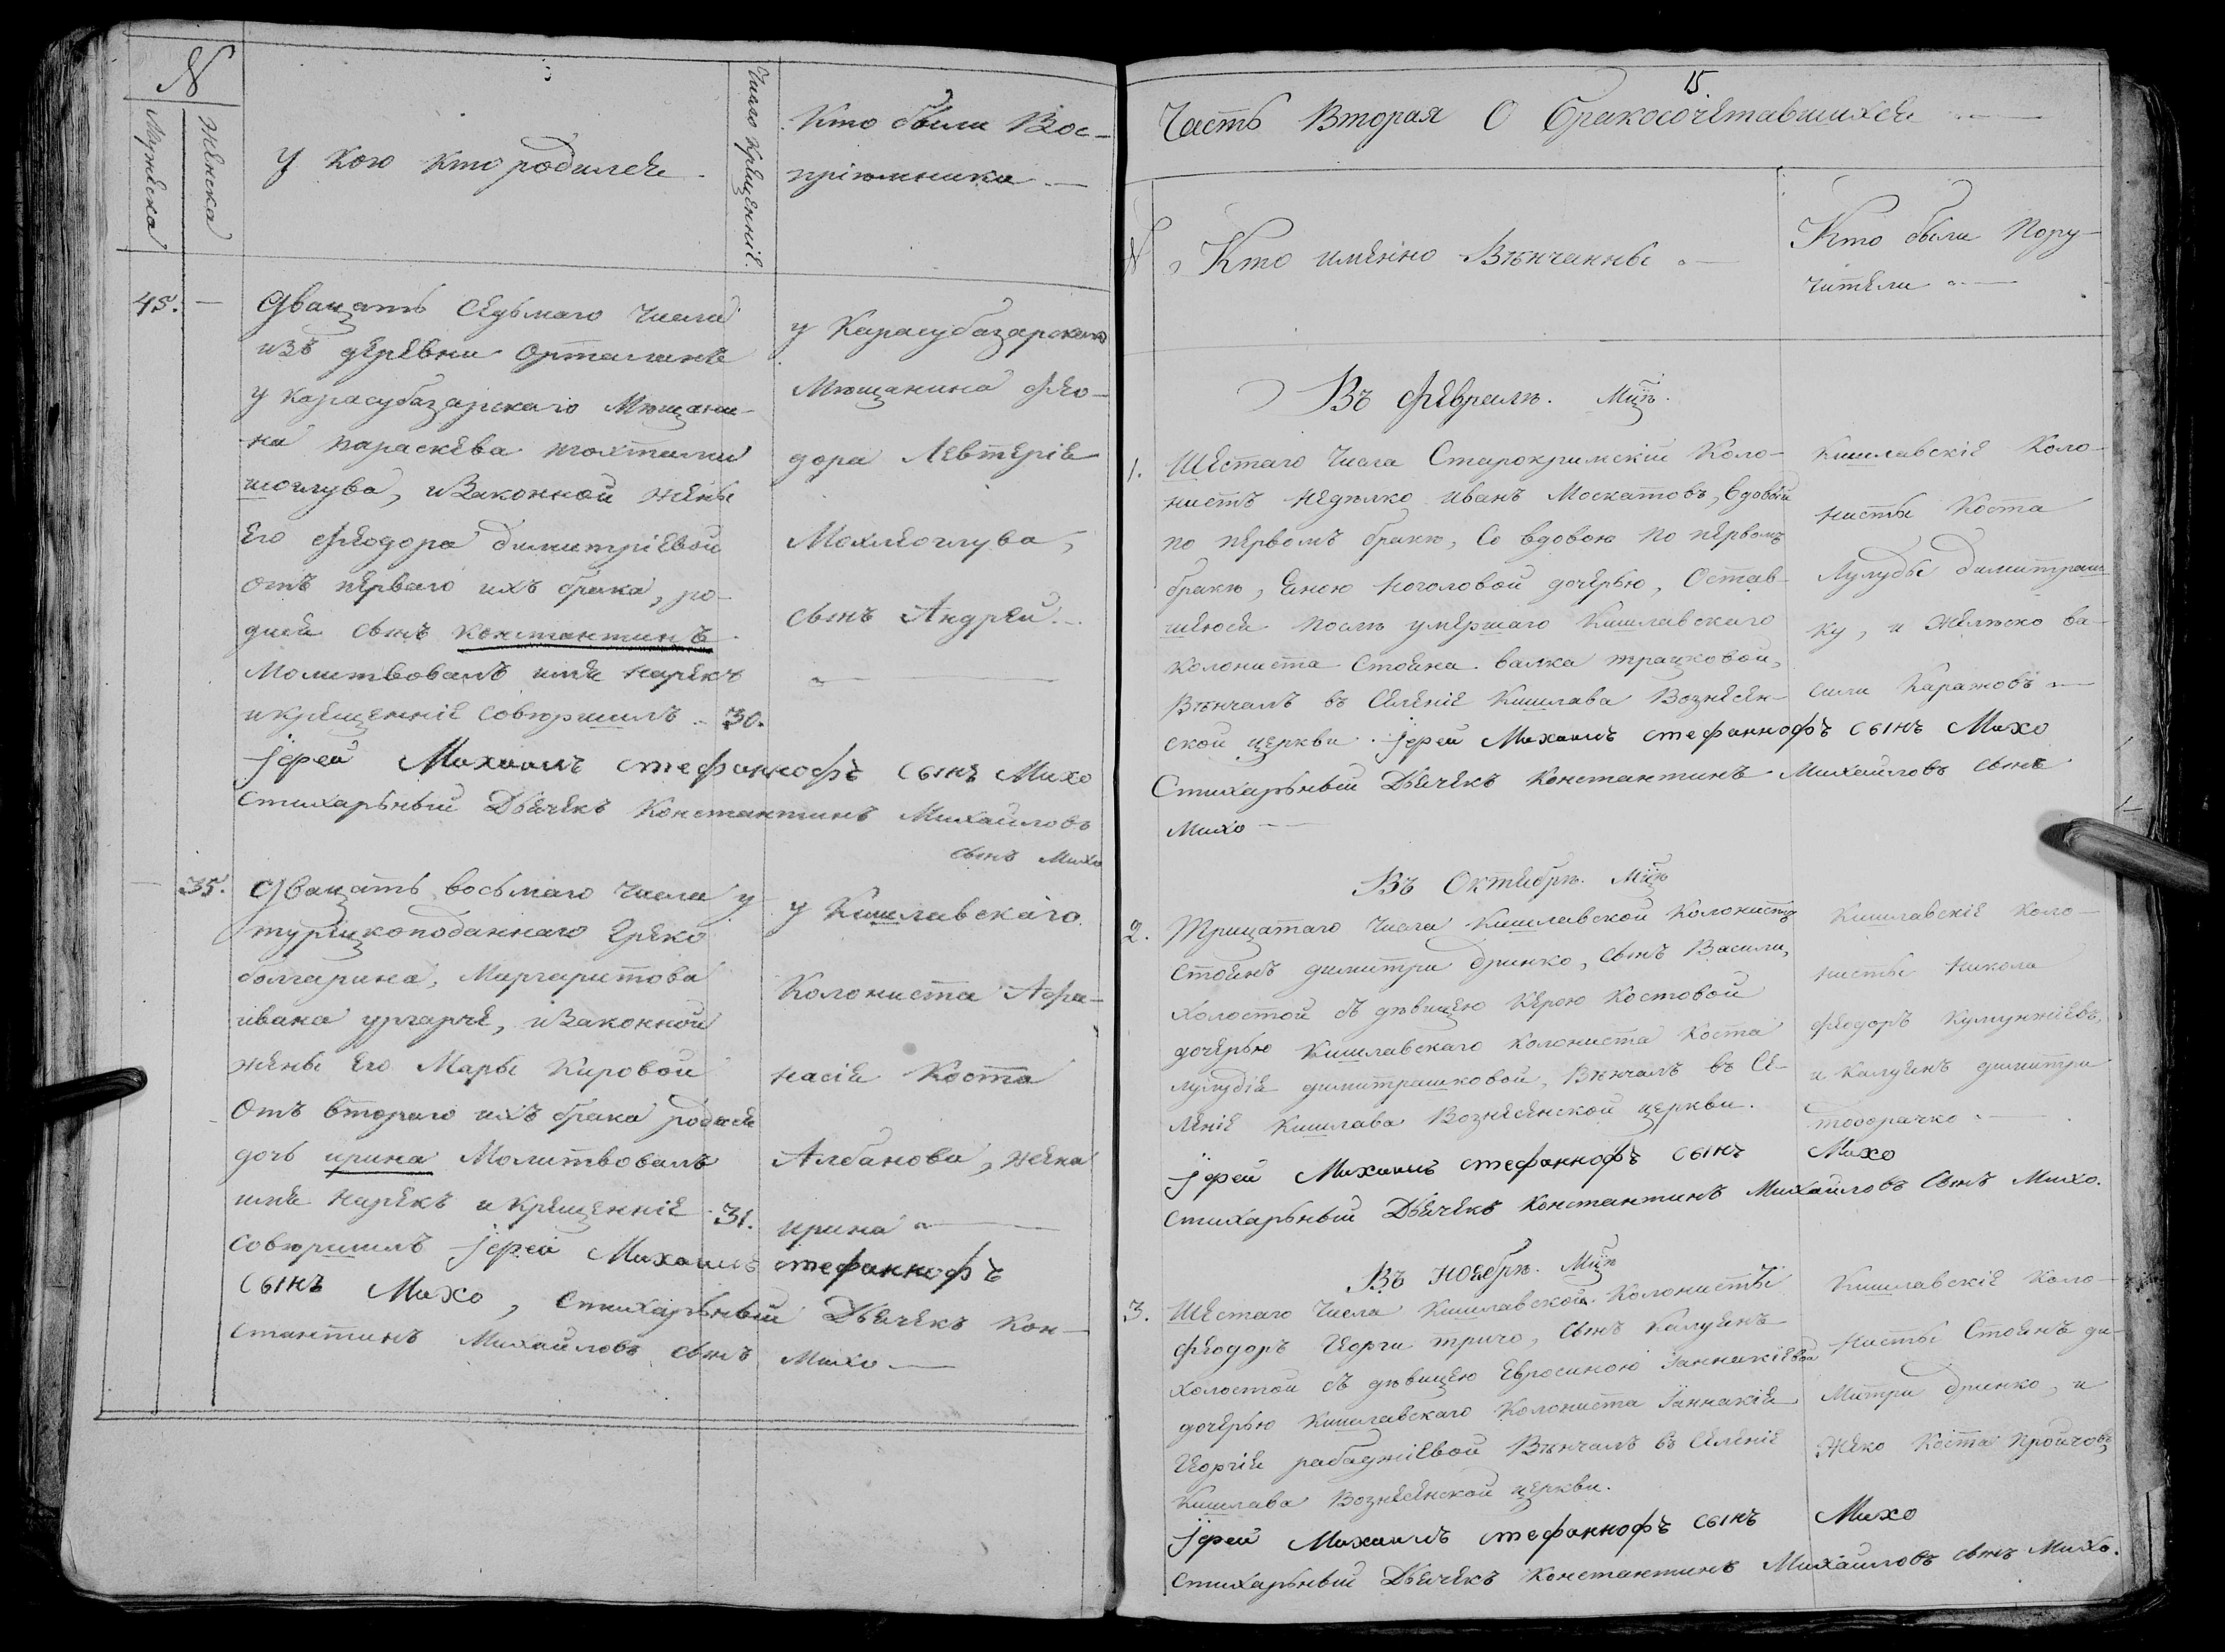 N
Мужеска
Женска
У Кого Кто родился
Число Крещенніе.
Кто были Вос-
пріемники
45.
Двацать Седьмаго Числа
изъ деревни Орталанъ
у Карасубазарскаго Мещани-
на Параскева
шоглува, и Законной жены
Его Феодора Димитріевой
отъ перваго ихъ брака, ро-
дися сынъ Константинъ
Молитвовалъ имя нарекъ
и крещенніе совершилъ 30.
у Карасубазарскаго
Мещанина Фео-
дора Левтерія
сынъ Андрей
Іерей Михаилъ стефаннофъ сынъ Михо
Стихарьный Дьячекъ Константинъ Михайловъ
сынъ Михо
35.
Двацать восьмаго числа у
турецкоподаннаго Греко
болгарина, Маргаритова
ивана, и Законной
жены Его Мары Кировой
Отъ втораго ихъ брака родися
дочь ирина Молитвовалъ
имя нарекъ и крещенніе 31.
у Кишлавскаго
Колониста Афа-
насія Коста
Албанова, жена
ирина
совершилъ Іерей Михаилъ стефаннофъ
сынъ Михо, Стихарьный Дьячекъ Кон-
стантинъ Михайловъ сынъ Михо
15
Часть Вторая О Бракосочетавшихся
N
Кто именно Венчанны
Кто были Пору-
чители
Въ Феврале. Мцѣ.
1.
Шестаго Числа Старокримскій Коло-
нистъ Неделко иванъ Москатовъ, вдовый
по первомъ браке, Со вдовою по первомъ
браке, Еною Ноголовой дочерью, Остав-
шеюся после умершаго Кишлавскаго
колониста Стояна валка трашковой,
Венчалъ въ Селеніе Кишлава Вознесен-
ской церкви. Іерей Михаилъ стефаннофъ сынъ Михо
Кишлавскіе Коло-
нисты Коста
Лулуды Димитраш
ку, и Желяско ва-
сили Каражовъ
Стихарьный Дьячекъ Константинъ Михайловъ сынъ
Михо
Въ Октябре. Мцѣ
2.
Трицатаго Числа Кишлавской Колонистъ
Стоянъ димитри дринко, сынъ Васили,
Холостой съ девицею Керою Костовой
дочерью Кишлавскаго колониста Коста
лулудія димитрашковой, Венчалъ въ Се-
леніе Кишлава Вознесенской церкви.
Кишлавскіе Коло-
нисты Никола
Феодоръ Кумунжіевъ,
и Калуянъ димитри
тодорачко
Іерей Михаилъ стефаннофъ сынъ Михо
Стихарьный Дьячекъ Константинъ Михайловъ Сынъ Михо.
Въ Ноябре. Мцѣ
3.
Шестаго Числа Кишлавской Колонисты
Феодоръ Георги тричо, сынъ Калуянъ
холостой съ девицею Евросиною Іаннакіевой
дочерью Кишлавскаго Колониста Іаннакія
Георгія рабаджіевой Венчалъ въ Селеніе
Кишлава Вознесенской церкви.
Кишлавскіе Коло-
нисты Стоянъ ди-
митри дринко, и
Желко Коста Пройчовъ,
Іерей Михаилъ стефаннофъ сынъ Михо
Стихарьный Дьячекъ Константинъ Михайловъ сынъ Михо.